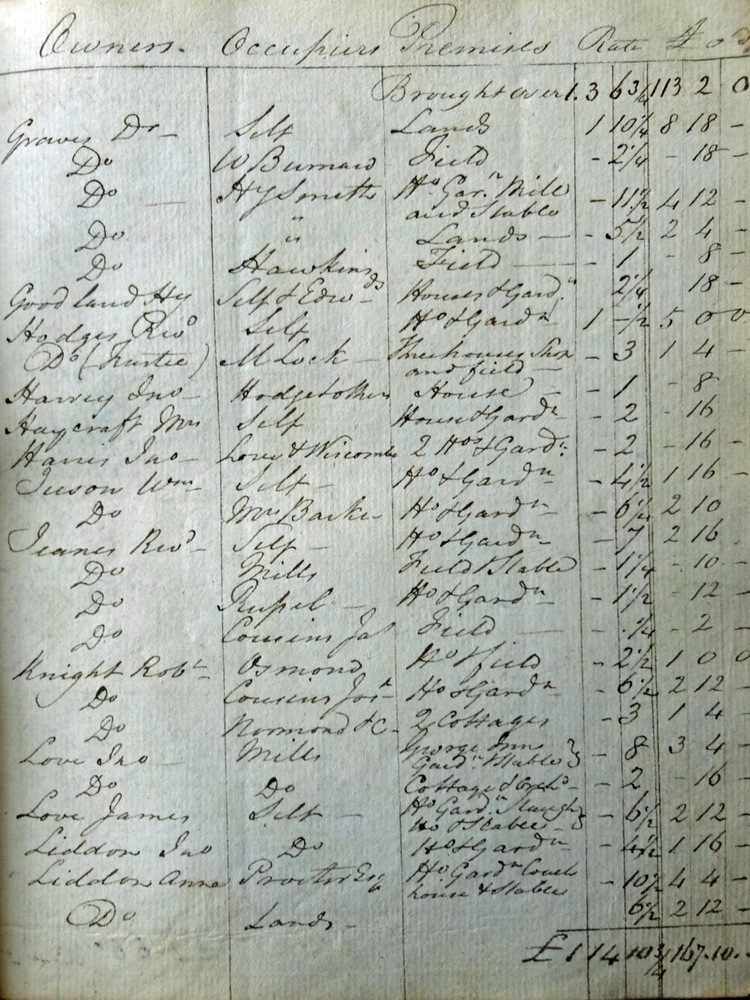 Owners Occupiers Premises Rate £ s d
Brought over 1.3 6 3/4 113 2 0
Graves Dr — Self Lands 1 10 1/4 8 18 -
Do W Burnard Field - 2 1/4 - 18 -
Do — Hy Smith Ho Garn Mill and Stable - 11 1/2 4 12 -
Do " Lands — - 5 1/2 2 4 -
Do Hawkins Field — - 1 - 8 -
Goodland Hy Self & Edwds Houses & Gardn 2 1/4 18 -
Hodges Revd Self Ho & Gardn 1 - 1/2 5 0 0
Do (Trustee) M Lock — Three houses Shop and field — - 3 1 4 -
Harvey Jno — Hodge & others House - - 1 - 8
Haycraft Mrs Self House & Gardn - 2 - 16
Harris Jno — Love & Wiscombe 2 Hos & Gardn - 2 - 16 -
Tuson Wm — Self - Ho & Gardn - 4 1/2 1 16 -
Do Mrs Barker Ho & Gardn - 6 1/4 2 10
Jeanes Revd — Self — Ho & Gardn - 7 2 16
Do Mills Field & Stable - 1 1/4 - 10 -
Do — Ho & Gardn - 1 1/2 - 12 -
Do Cousins Jas Field — - . 1/4 - 2 -
Knight Robt — Osmond Ho & field - 2 1/2 1 0 0
Do Cousens Jos — Ho & Gardn - 6 1/2 2 12 -
Do Normond &C - 2 Cottages - 3 1 4 -
Love Jno — Mills George Inn Gardn & Stable } - 8 3 4 -
Do Do Cottage & Orchd - 2 - 16 -
Love James Self — Ho Gardn Slaugh Ho & Stable - } - 6 1/2 2 12 -
Liddon Jno Do Ho & Gardn - 4 1/2 1 16 -
Liddon Anne Procter Esq Ho Gardn Coach house & Stable - 10 1/2 4 4 -
Do Lands - 6 1/2 2 12 -
£ 1 14 10 3/4 167 . 10 . -